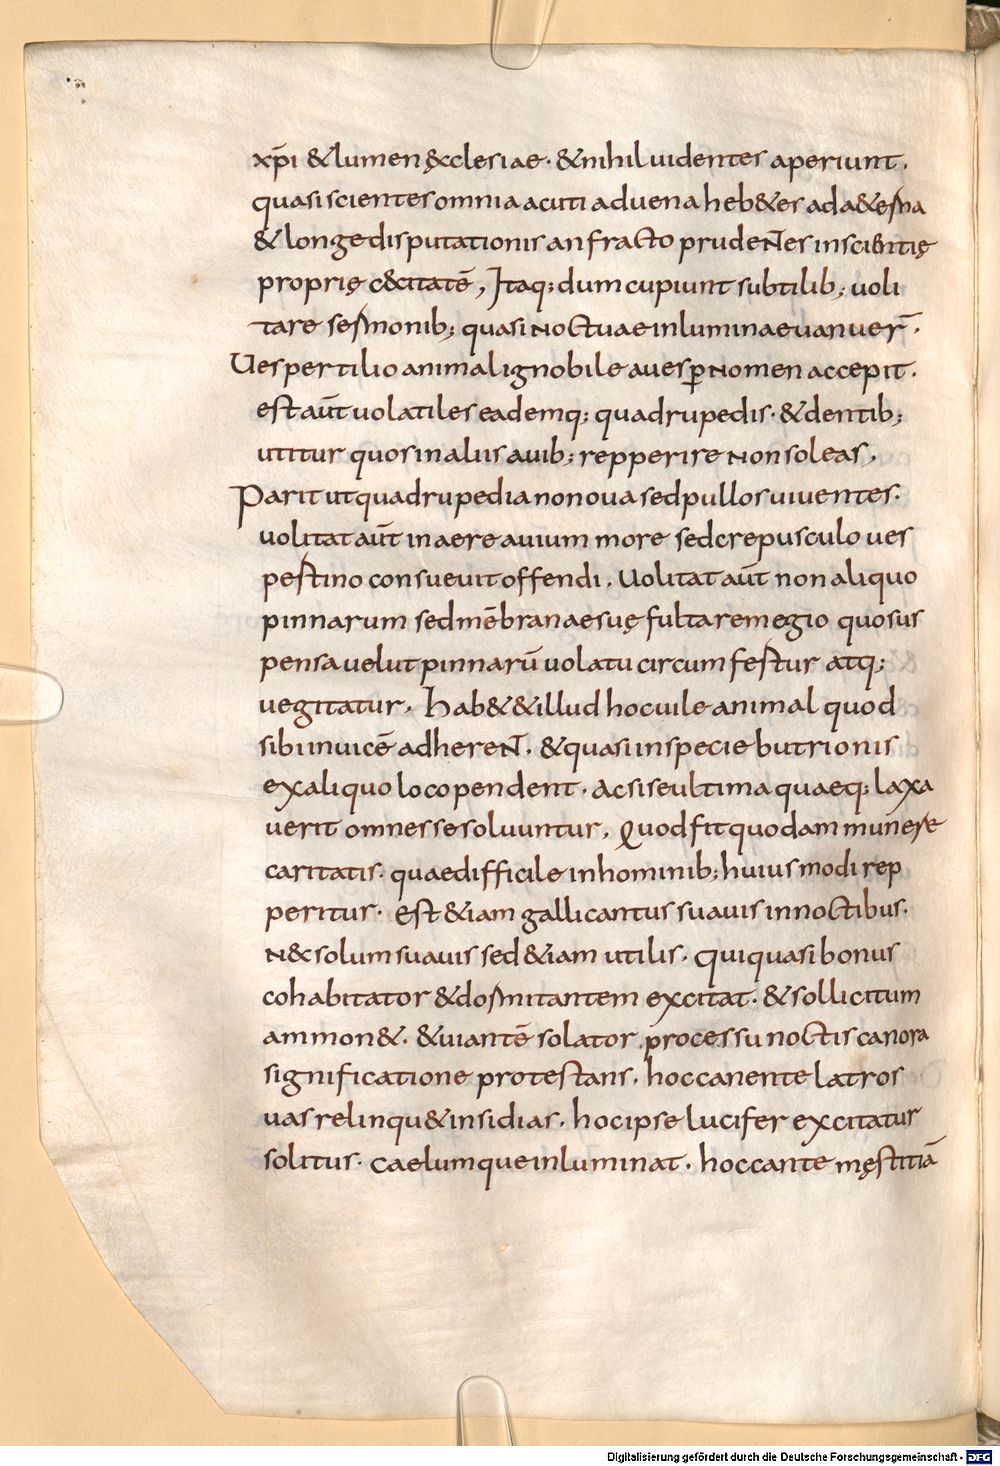 xp̄i & lumen ęcclesiae · & nihil uidentes aperiunt ·
quasi scientes omnia acuti aduena heb&es ada&erna
& longe disputationis anfracto prudeNTes inscientię
proprię c&citatē, Itaq; dum cupiunt subtilib; uoli
tare sermonib; quasi noctuae in lumina euanuer̄ ·
Uespertilio animal ignobile auesꝑ nomen accepit ·
est aūt uolatiles eademq; quadrupedis · & dentib;
utitur quos in aliis auib; repperire non soleas,
Parit ut quadrupedia non oua sed pullos uiuentes ·
uolitat aūt in aere auium more sed crepusculo ues
pertino consueuit offendi. Uolitat aūt non aliquo
pinnarum sed mēbranae suę fulta remegio quo sus
pensa uelut pinnarū uolatu circumfertur atq;
uegitatur, Hab& & illud hoc uile animal quod
sibi inuicē adhereNT · & quasi in specie butrionis
ex aliquo loco pendent · ac si se ultima quaeq; laxa
uerit omnes se soluuntur, Quod fit quodam munere
caritatis · quae difficile in hominib; huius modi rep
peritur · Est &iam galli cantus suauis in noctibus ·
N&c solum suauis sed &iam utilis · qui quasi bonus
cohabitator & dormitantem excitat · & sollicitum
ammon& · & uiantē solator processu noctis canora
significatione protestans · hoc canente latros
uas relinqu& insidias · hoc ipse lucifer excitatur
solitus · caelumque inluminat · hoc cante męstitiā
Digitalisierung gefördert durch die Deutsche Forschungsgemeinschaft - DFG